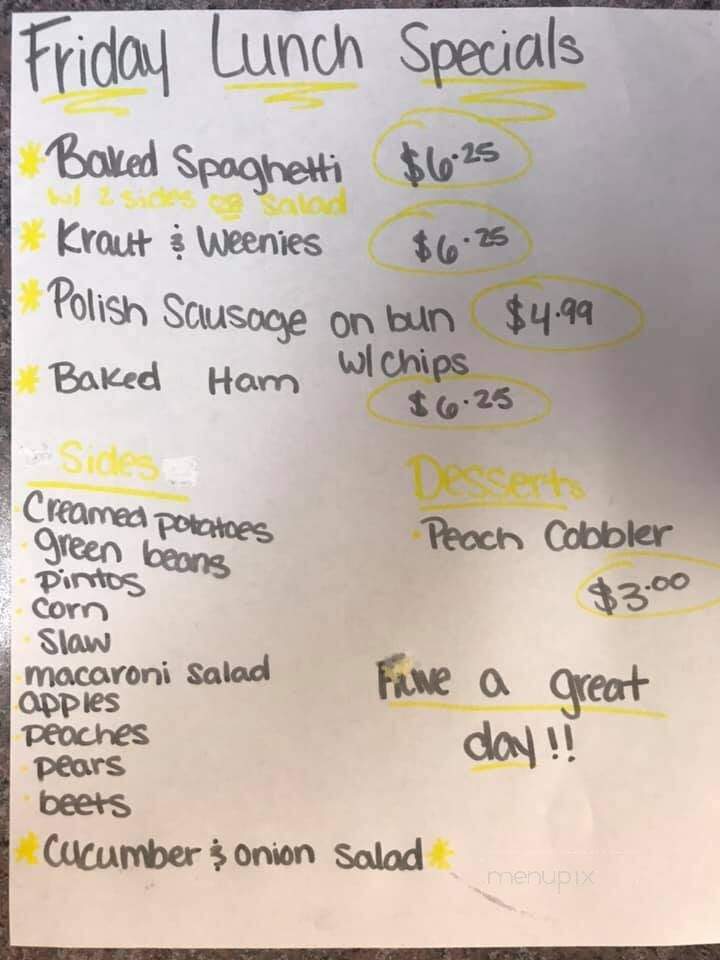 Friday Lunch Specials
* Baked Spaghetti $6.25
w/ 2 sides or Salad
* Kraut & Weenies $6.25
* Polish Sausage on bun $4.99
w/ chips
* Baked Ham $6.25
Sides
Creamed potatoes
· green beans
· pintos
· corn
· Slaw
· macaroni salad
apples
· peaches
· pears
· beets
* Cucumber & onion Salad *
Desserts
· Peach Cobbler
$3.00
Have a great
day!!
menupix